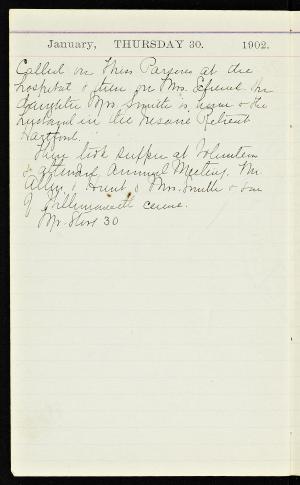 January, THURSDAY 30. 1902.
Called on Miss Parsons at the
hospital & then on Mrs.
daughter Mrs Smith is home & the
husband in the Insane Retreat
Hartford.
took supper at Volunteers
& attended Annual Meeting. Mr
Allen & & Mrs. Smith &
of came.
Mr. 30